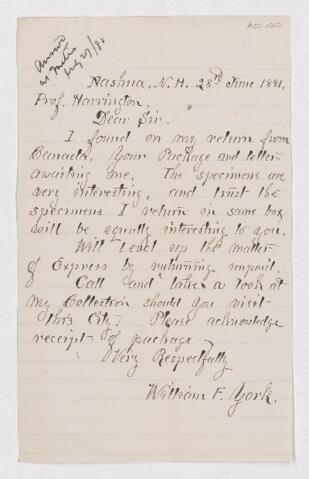 ACC-1010
Nashua, N.H. 28th June 1881,
Prof. Harrington,
Dear Sir.
I found on my return from
Canada, Your Package and letter
awaiting me. The specimens are
very interesting, and trust the
specimens I return in same box
will be equally interesting to you.
Will Level up the matter
of Express by returning unpaid.
Call and take a look at
my Collection should you visit
this City? Please acknowledge
receipt of package —
Very Respectfully
William F. York.